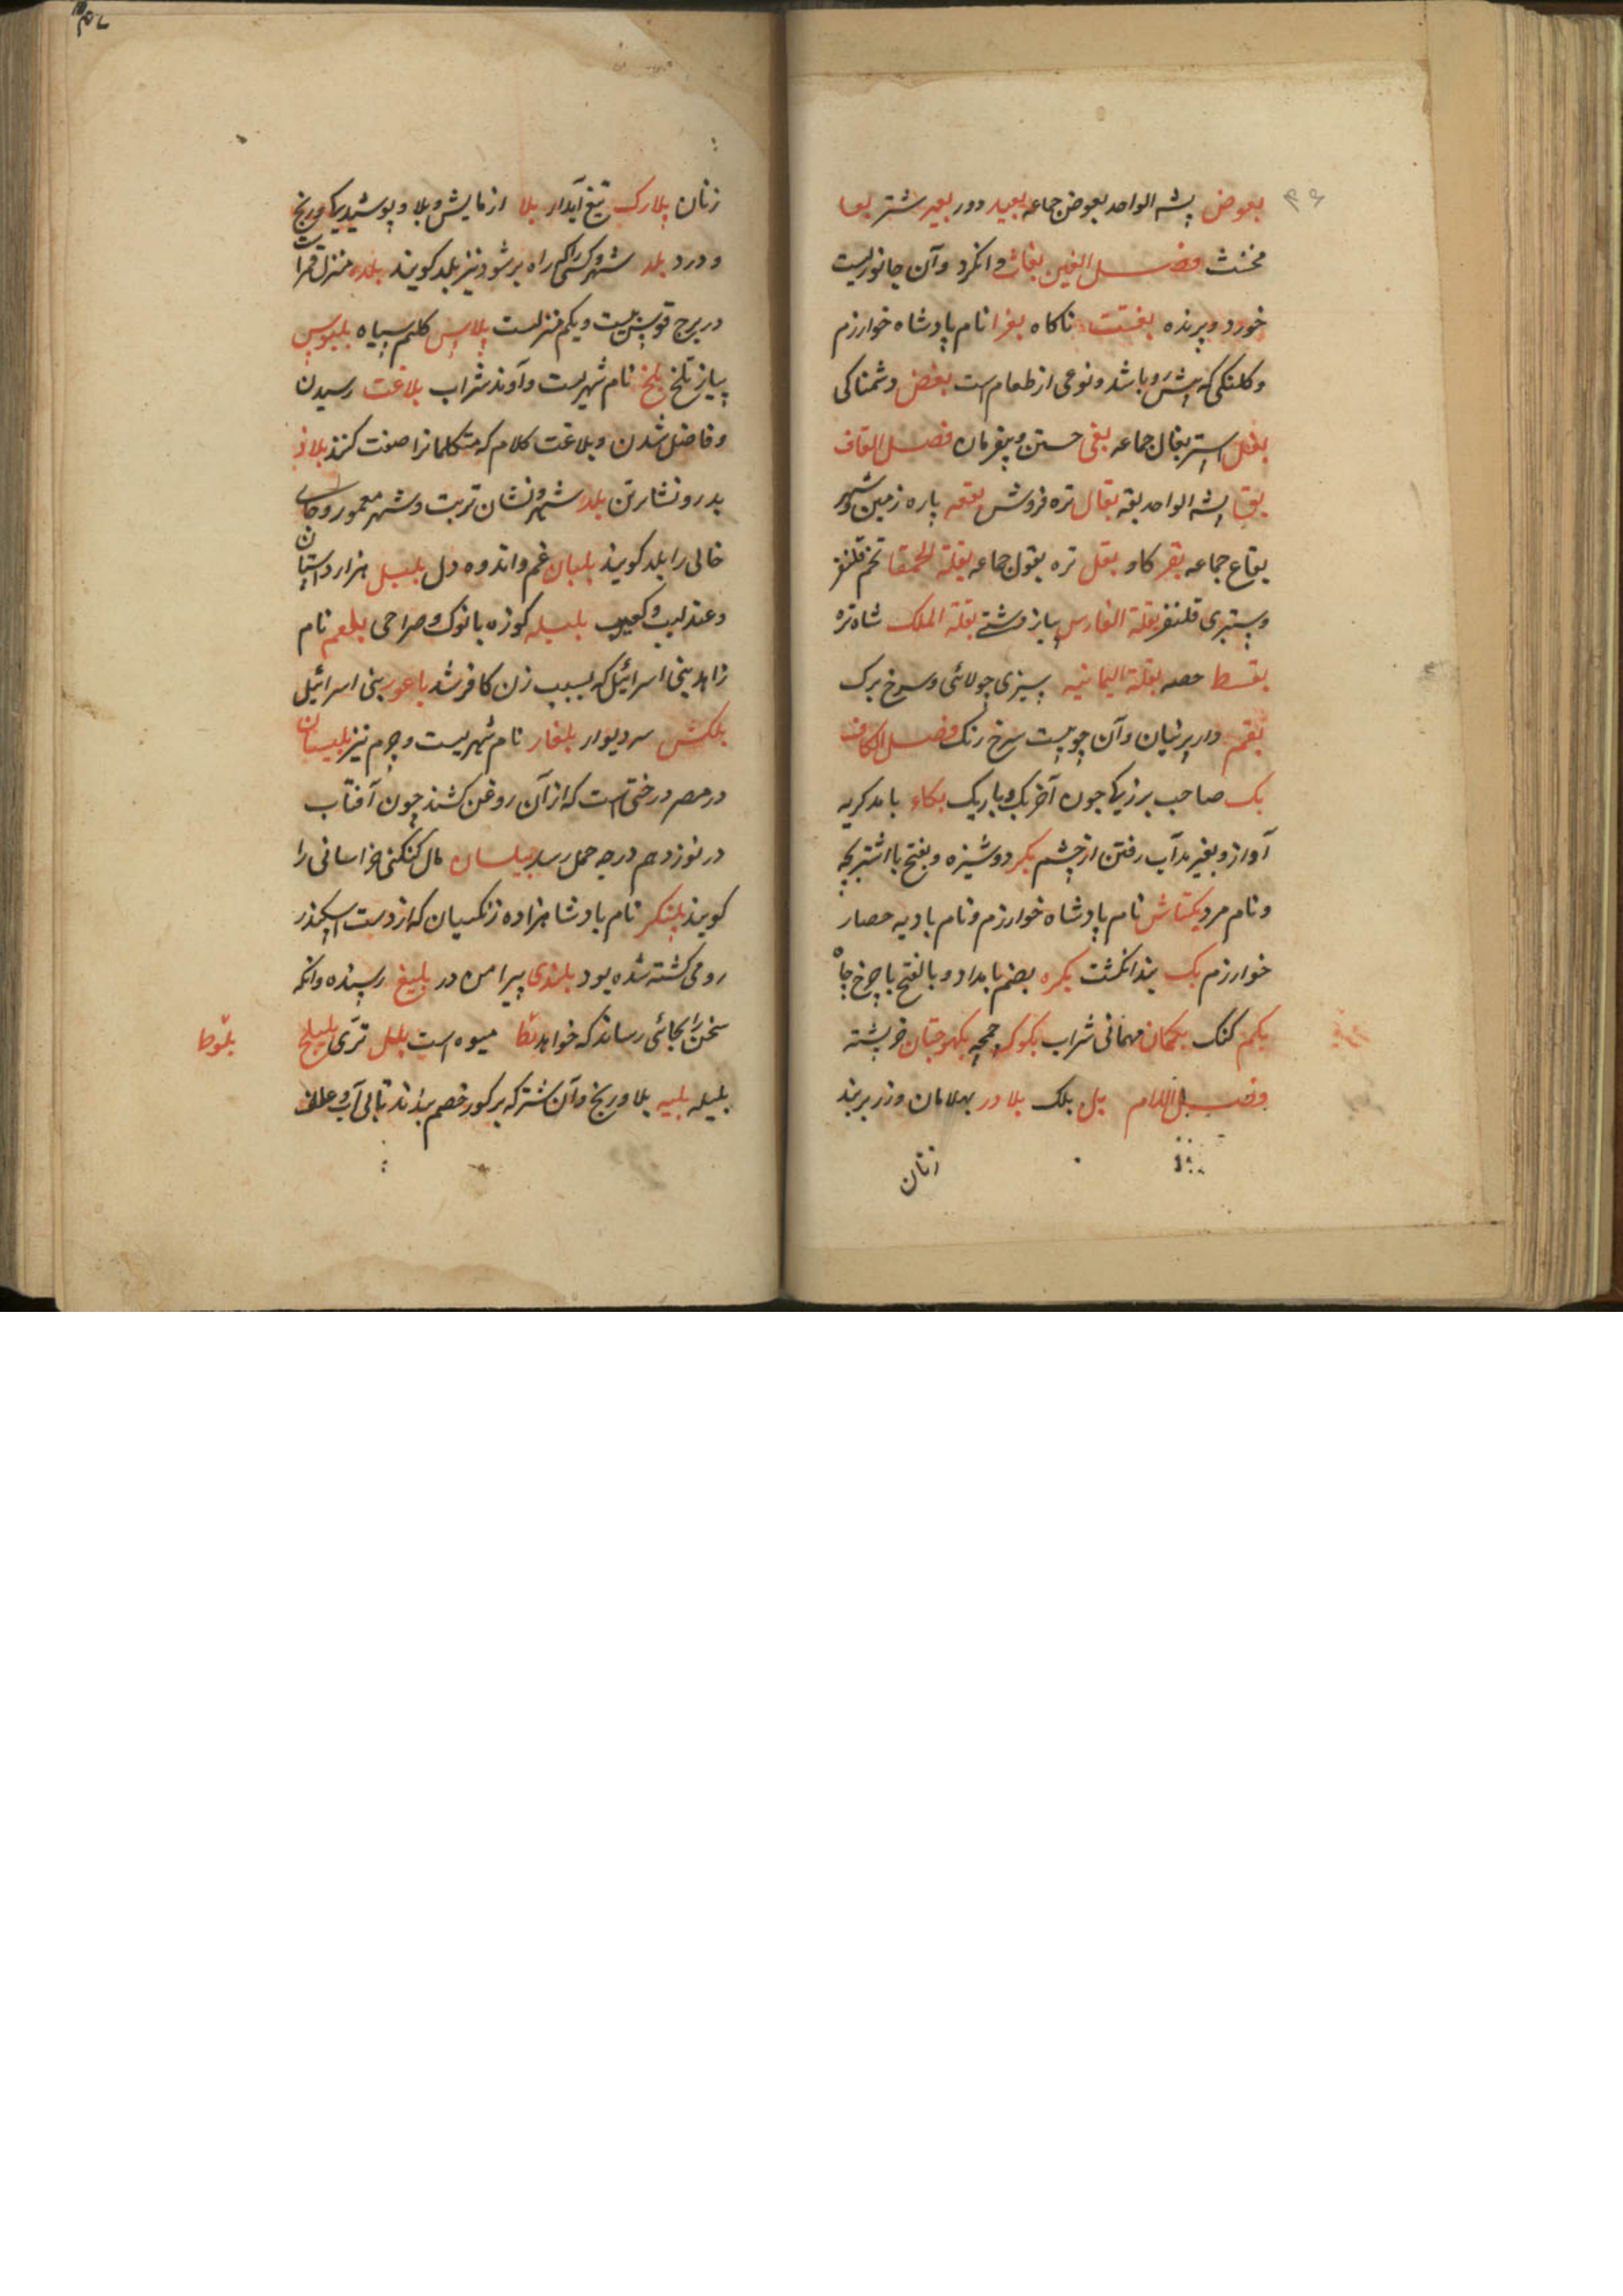 ۴۶
بعوض پشه الواحد بعوض جماعه بعید دور بعیر شتر بغا
مخنث فصل الغین بغاث وانکرد وآن جانوریست
خورد وپرنده بغتت ناکاه بغرا نام پادشاه خوارزم
وکلنکی که پیش رو باشد ونوعی از طعام است بغض دشمناکی
بغل استر بغال جماعه بغی جستن وبیفرمان فصل القاف
بق پشه الواحد بقه بقال تره فروش بقعه پاره زمین وشهر
بقاع جماعه بقر کاو بقل تره بقول جماعه بقلة الحمقا تخم قلنفر
وسبزی قلنفر بقلة الفارس پیاز دشتی بقلة الملک شاه تره
بقسط حصه بقلة الیمانیه سبزی چولائی وسرخ برک
بقم دار پرنیان وآن چوبیست سرخ رنک فصل الکاف
بک صاحب بزرکی چون آخر بک وباریک بکاء با مد کریه
آواز وبغیر مد آب رفتن از چشم بکر دوشیزه وبفتح با اشتر بچه
ونام مرد بکتاش نام پادشاه خوارزم ونام بادیه حصار
خوارزم بک بند انکشت بکره بضم بامداد وبالفتح با چرخ چاه
بکم کنک بکمان مهمانی شراب بکوک چمچه بکهوجتان خرپشته
فصل اللام بل بلک بلادر بهلامان وزر بر بند
زنان
زنان بلارک تیغ آبدار بلا ازمایش وبلا وپوشیدیکی ورنج
ودرد بلد شهر وکسی را کم راه بر شود نیز بلد کویند بلده منزل قمر است
در برج قوس بیست ویکم منزلست پلاس کلیم سیاه بلبوس
پیاز تلخ بلخ نام شهریست وآوند شراب بلاغت رسیدن
وفاضل شدن وبلاغت کلام که متکلمانرا صفت کنند بلاد
بدرو نشار تن بلد شهر ونشان تربت وشهر معمور وجای
خالی را بلد کویند بلبان غم واندوه دل بلبل هزار داستان
وعندلیب وکعیب بلبله کوزه با نوک وصراحی بلعم نام
زاهد بنی اسرائیل که بسبب زن کافر شد باعور بنی اسرائیل
بلکش سر دیوار بلغار نام شهریست وچرم نیز بلیسان
در مصر درختی است که از آن روغن کشند چون آفتاب
در نوزدهم درجه حمل رسد بیلسان مال کنکنی خراسانی را
کویند پلنکر نام پادشاهزاده زنکیان که از دست اسکندر
رومی کشته شده بود بلندی پیرامن در بلیغ رسیده وانکه
سخن را بجائی رساند که خواهد میوه است بلل تری بلیلج
بلوط
بلیله بلیه بلا ورنج وآن شتر که بر کور خصم بندند تا بی آب وعلف